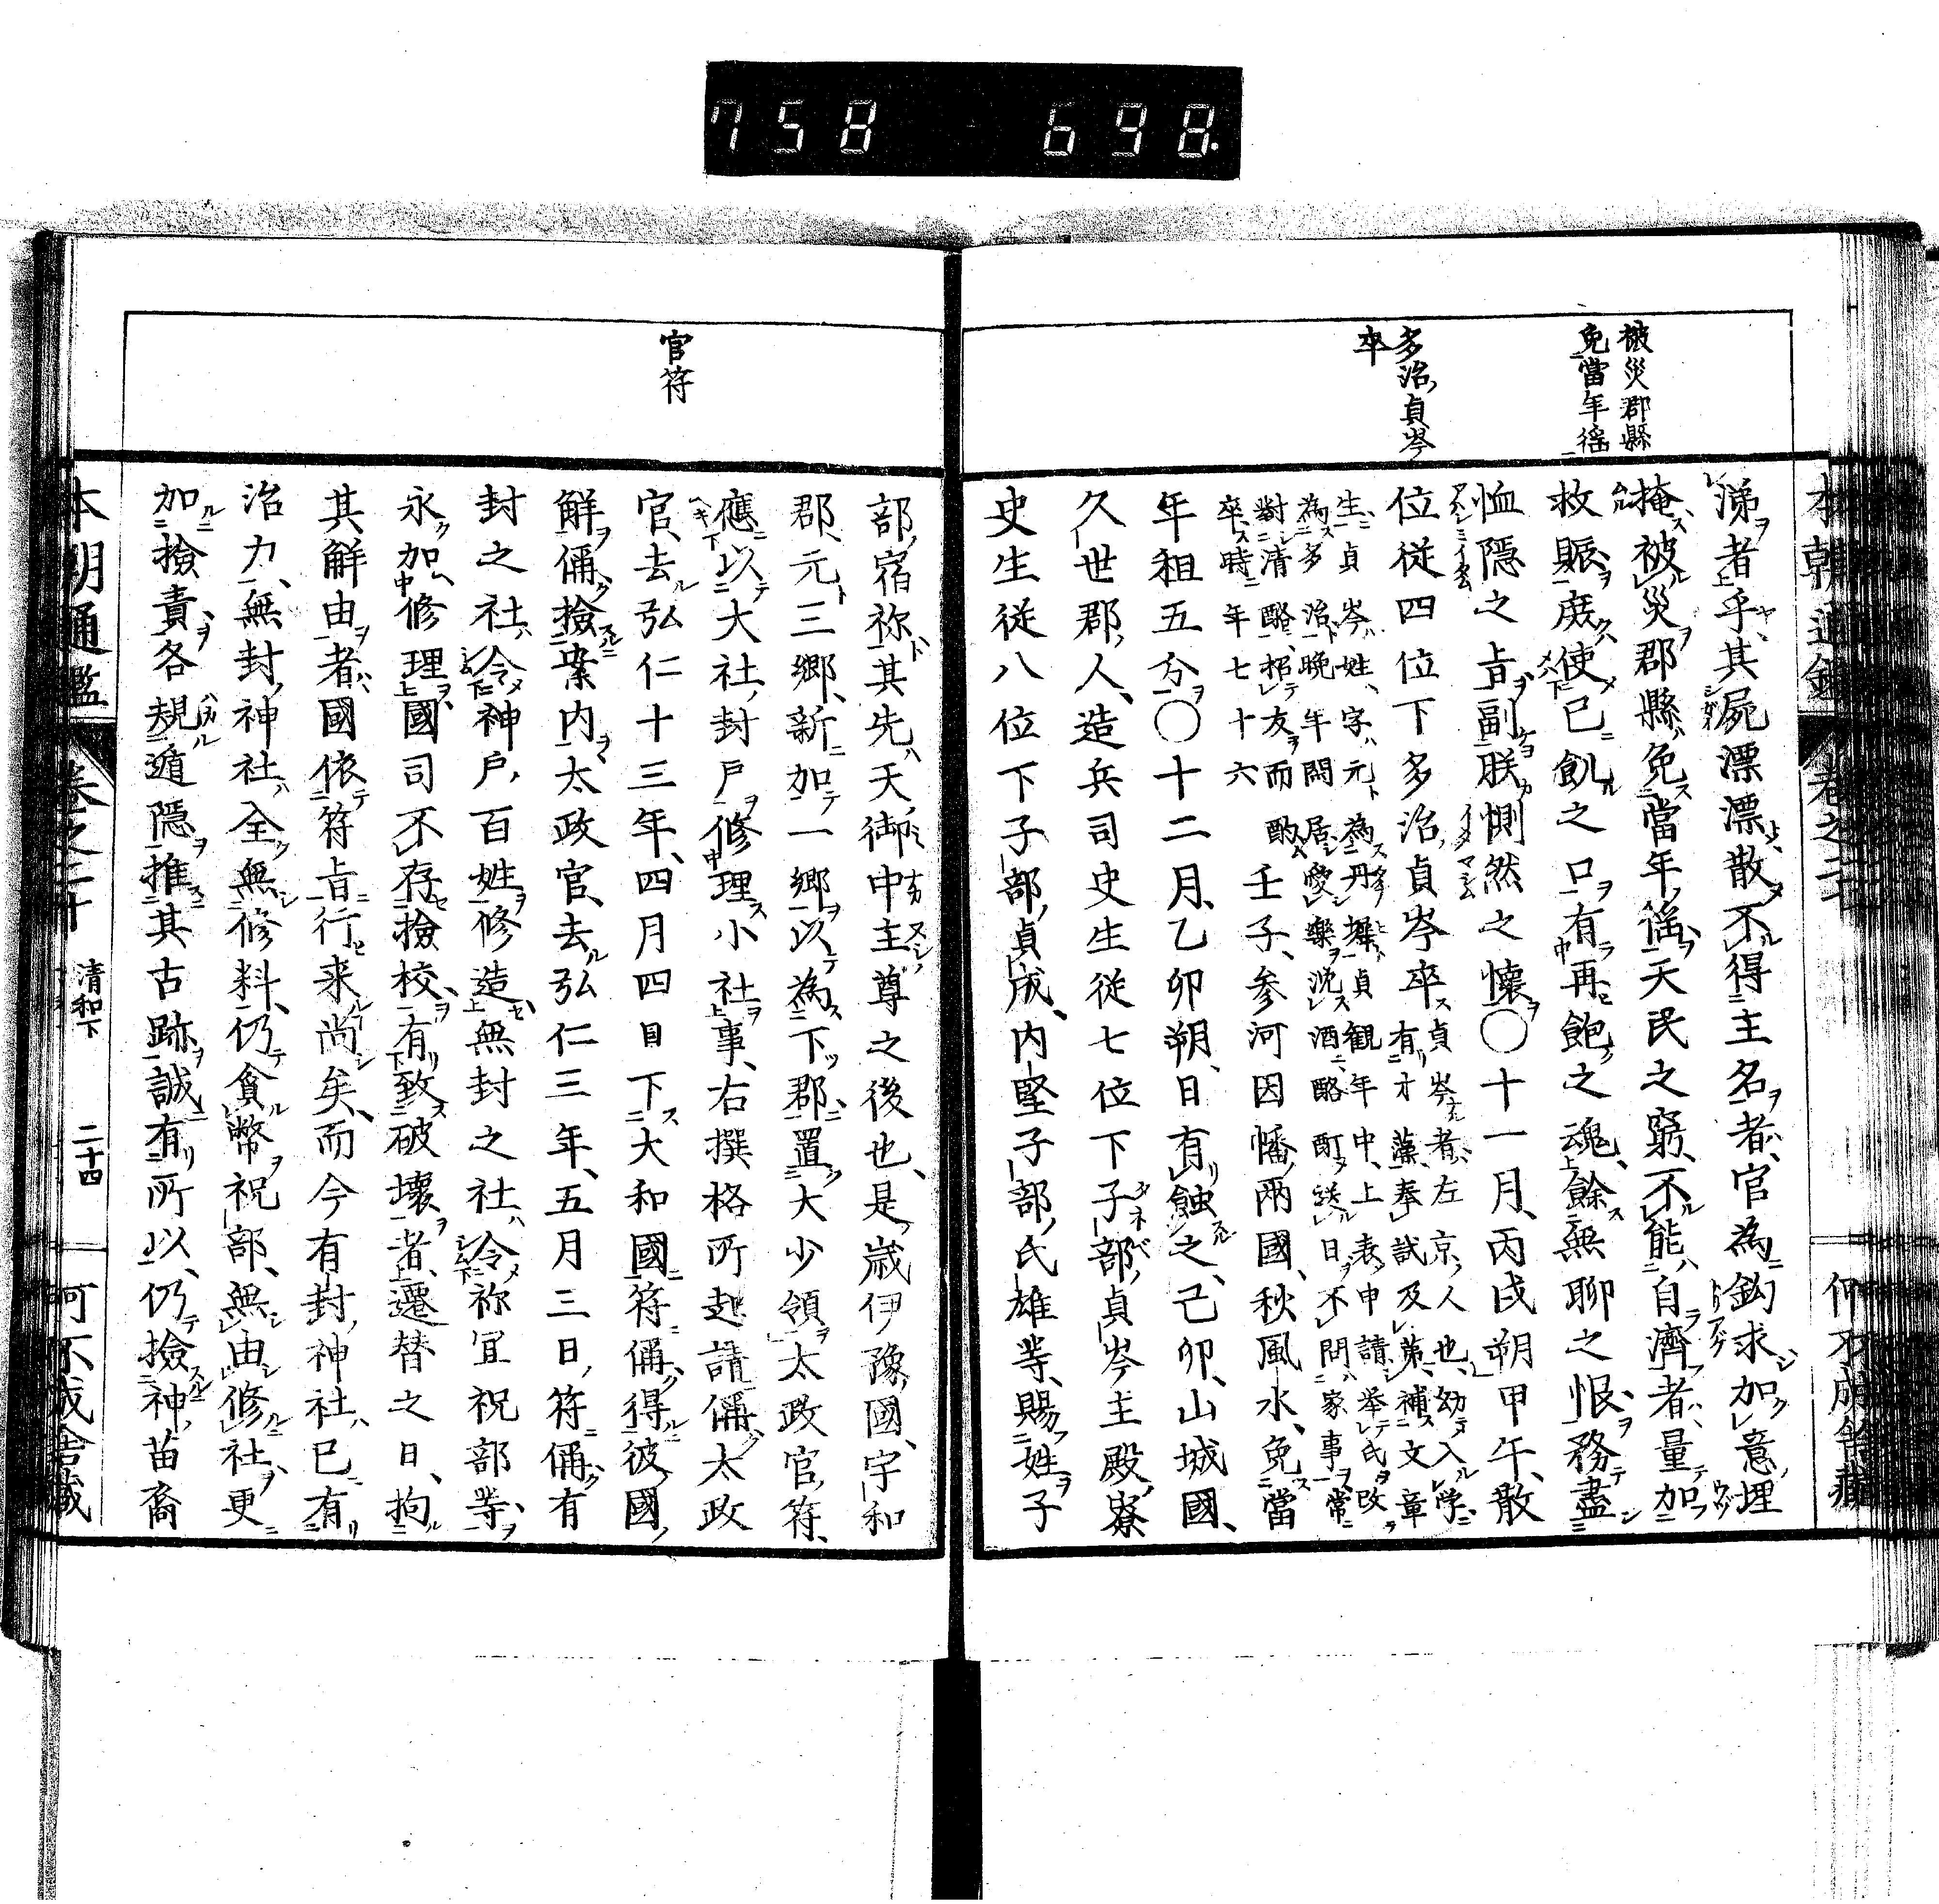 758 698.
被災郡縣
免當年徭
多治貞岑
卒
涕者乎其屍漂漂散不得主名者官為鈎求加意埋
掩被災郡縣免當年徭天民之窮不能自濟者量加
救賑庶使已飢之口有再飽之魂餘無聊之恨務盡
恤隱之旨副朕惻然之懷〇十一月丙戌朔甲午散
位從四位下多治貞岑卒
貞岑者左京人也幼入学
有才藻奉試及第補文章
生貞岑姓字元為丹墀貞観年中上表申請举氏改
為多治晩年閑居愛樂沈酒酩酊送日不問家事常
對清酩招友而酌
卒時年七十六
壬子參河因幡兩國秋風水免當
年租五分〇十二月乙卯朔日有蝕之己卯山城國
久世郡人造兵司史生從七位下子部貞岑主殿寮
史生從八位下子部貞成内堅子部氏雄等賜姓子
部宿祢其先天御中主尊之後也是歳伊豫國宇和
郡元三郷新加一郷以為下郡置大少領太政官符
應以大社封戸修理小社事右撰格所起請偁太政
官去弘仁十三年四月四日下大和國符偁得彼國
解偁撿案内太政官去弘仁三年五月三日符偁有
封之社令神戸百姓修造無封之社令祢宜祝部等
永加修理國司不存撿校有致破壞者遷替之日拘
其解由者國依符旨行来尚矣而今有封神社已有
治力無封神社全無修料仍貪幣祝部無由修社更
加撿責各規遁隠推其古跡誠有所以仍撿神苗裔
官符
本朝通鑑 卷之二十 清和下 二十四